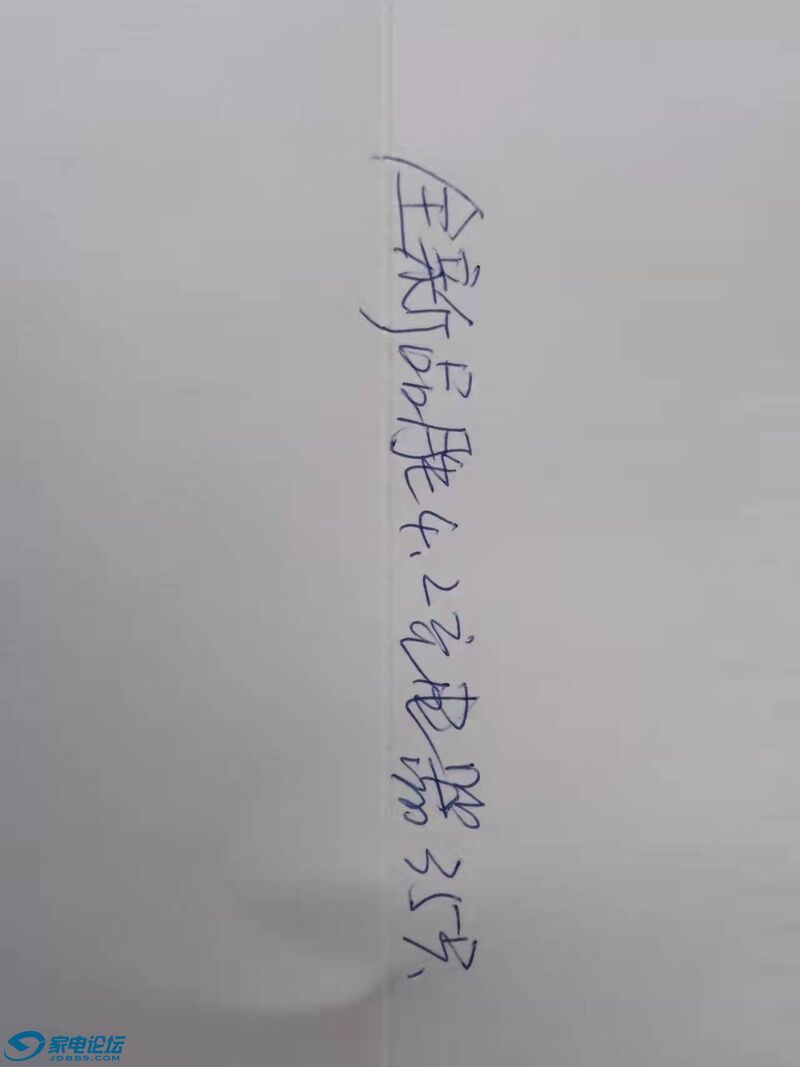 全新品胜4.2充电器35号
家电论坛
JDBBS.COM